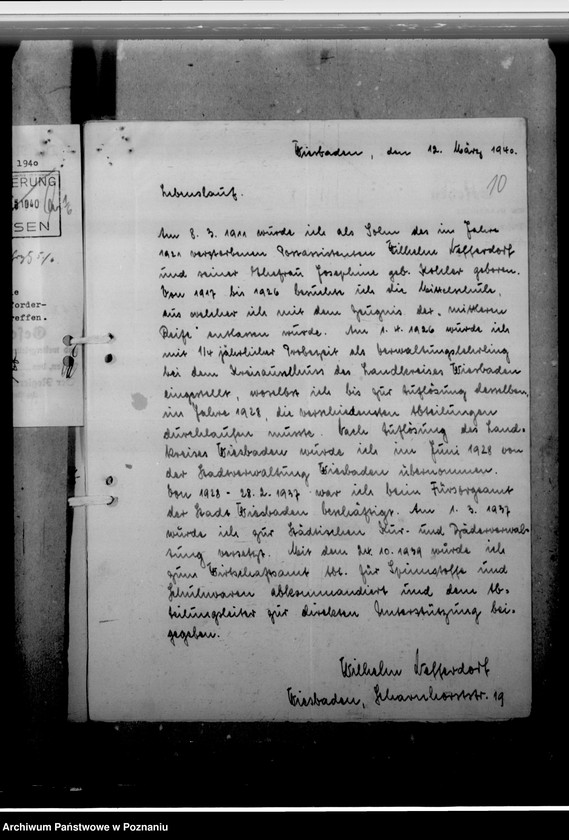 1940
ERUNG
1940
SEN
forder-
reffen.
Wiesbaden, den 12. März 1940.
10
Lebenslauf.
Am 8. 3. 1911 wurde ich als Sohn des im Jahre
1921 verstorbenen Postassistenten Wilhelm Nefferdorf
und seiner Ehefrau Josephine geb. Kohler geboren.
Von 1917 bis 1926 besuchte ich die Mittelschule,
aus welcher ich mit dem Zeugnis der „mittleren
Reife" entlassen wurde. Am 1. 4. 1926 wurde ich
mit 1/4 jährlicher Probezeit als Verwaltungslehrling
bei dem Kreisausschuss des Landkreises Wiesbaden
eingestellt, woselbst ich bis zur Auflösung desselben,
im Jahre 1928, die verschiedensten Abteilungen
durchlaufen musste. Nach Auflösung des Land-
kreises Wiesbaden wurde ich im Juni 1928 von
der Stadtverwaltung Wiesbaden übernommen.
Von 1928 - 28. 2. 1937 war ich beim Fürsorgeamt
der Stadt Wiesbaden beschäftigt. Am 1. 3. 1937
wurde ich zur Städtischen Kur- und Bäderverwal-
tung versetzt. Mit dem 24. 10. 1939 wurde ich
zum Wirtschaftsamt Abt. für Spinnstoffe und
Schuhwaren abkommandiert und dem Ab-
teilungsleiter zur direkten Unterstützung bei-
gegeben.
Wilhelm Nefferdorf
Wiesbaden, Scharnhorststr. 19
Archiwum Państwowe w Poznaniu